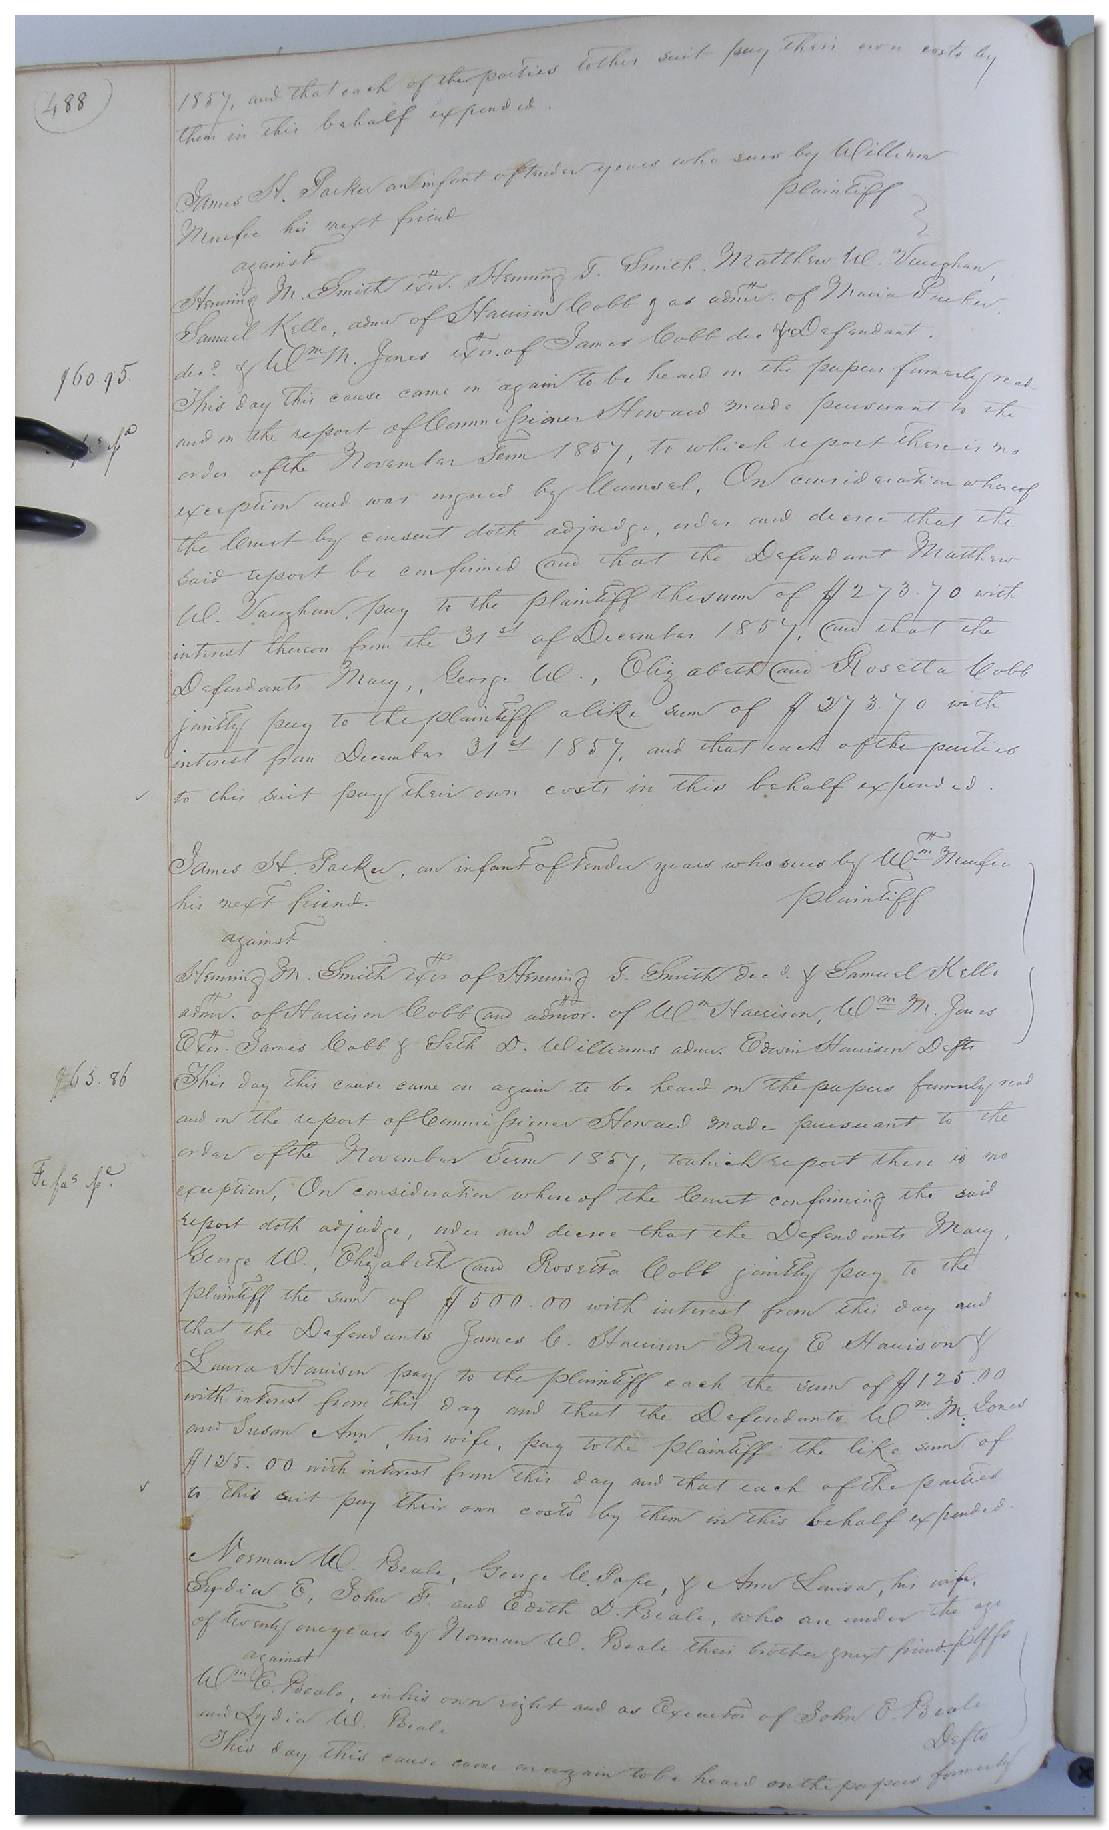 488
1857, and that each of the parties to this suit pay their own costs by
them in this behalf expended.
James H. Parker an infant of tender years who sues by William
Murfee his next friend plaintiff
against
Henning M. Smith exr. Henning T. Smith, Matthew W. Vaughan,
Samuel Kello, admr of Harrison Cobb & as admr. of Maria Parker
decd. & Wm M. Jones exr. of James Cobb dec Defendant.
$60.95
This day this cause came on again to be heard on the papers formerly read
and on the report of Commissioner Howard made pursuant to the
order of the November Term 1857, to which report there is no
exception and was argued by Counsel, On consideration whereof
the Court by consent doth adjudge, order and decree that the
said report be confirmed and that the Defendant Matthew
W. Vaughan, pay to the plaintiff the sum of $273.70 with
interest thereon from the 31st of December 1857, and that the
Defendants Mary, George W., Elizabeth and Rosetta Cobb
jointly pay to the plaintiff a like sum of $273.70 with
interest from December 31st 1857, and that each of the parties
to this suit pay their own costs in this behalf expended.
James H. Parker, an infant of tender years who sues by Wm Murfee
his next friend. plaintiff
against
Henning M. Smith exr of Henning T. Smith decd. & Samuel Kello
admr. of Harrison Cobb and admor. of Wm Harrison, Wm M. Jones
Exr. James Cobb & Seth D. Williams admr. Edwin Harrison Defts
$63.86
This day this cause came on again to be heard on the papers formerly read
and on the report of Commissioner Howard made pursuant to the
order of the November Term 1857, to which report there is no
Fi fas
exception, On consideration whereof the Court confirming the said
report doth adjudge, order and decree that the Defendants Mary,
George W., Elizabeth and Rosetta Cobb jointly pay to the
plaintiff the sum of $500.00 with interest from this day and
that the Defendants James C. Harrison Mary E Harrison &
Laura Harrison pay to the plaintiff each the sum of $125.00
with interest from this day and that the Defendants Wm M. Jones
and Susan Ann, his wife, pay to the plaintiff the like sum of
$125.00 with interest from this day and that each of the parties
to this suit pay their own costs by them in this behalf expended.
Norman W. Beale, George W. Pope, & Ann Louisa, his wife,
Lydia E, John F. and Edith D. Beale, who are under the age
of twenty one years by Norman W. Beale their brother & next friend plffs
against
Wm C. Beale, in his own right and as Executor of John E. Beale
and Lydia W. Beale Defts
This day this cause came on again to be heard on the papers formerly